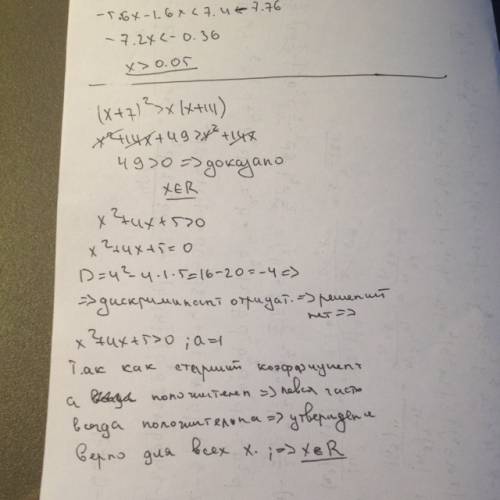 -5.6x-1.6x<7.4-7.76
-7.2x<-0.36
x>0.05
(x+7)²>x(x+14)
x²+14x+49>x²+14x
49>0 => доказано
x∈R
x²+4x+5>0
x²+4x+5=0
D=4²-4·1·5=16-20=-4=>
=> дискриминант отрицат. => решений
нет =>
x²+4x+5>0 ; a=1
Так как старший коэффициент
а положителен => левая часть
всегда положительна => утверждение
верно для всех х. ; => x∈R